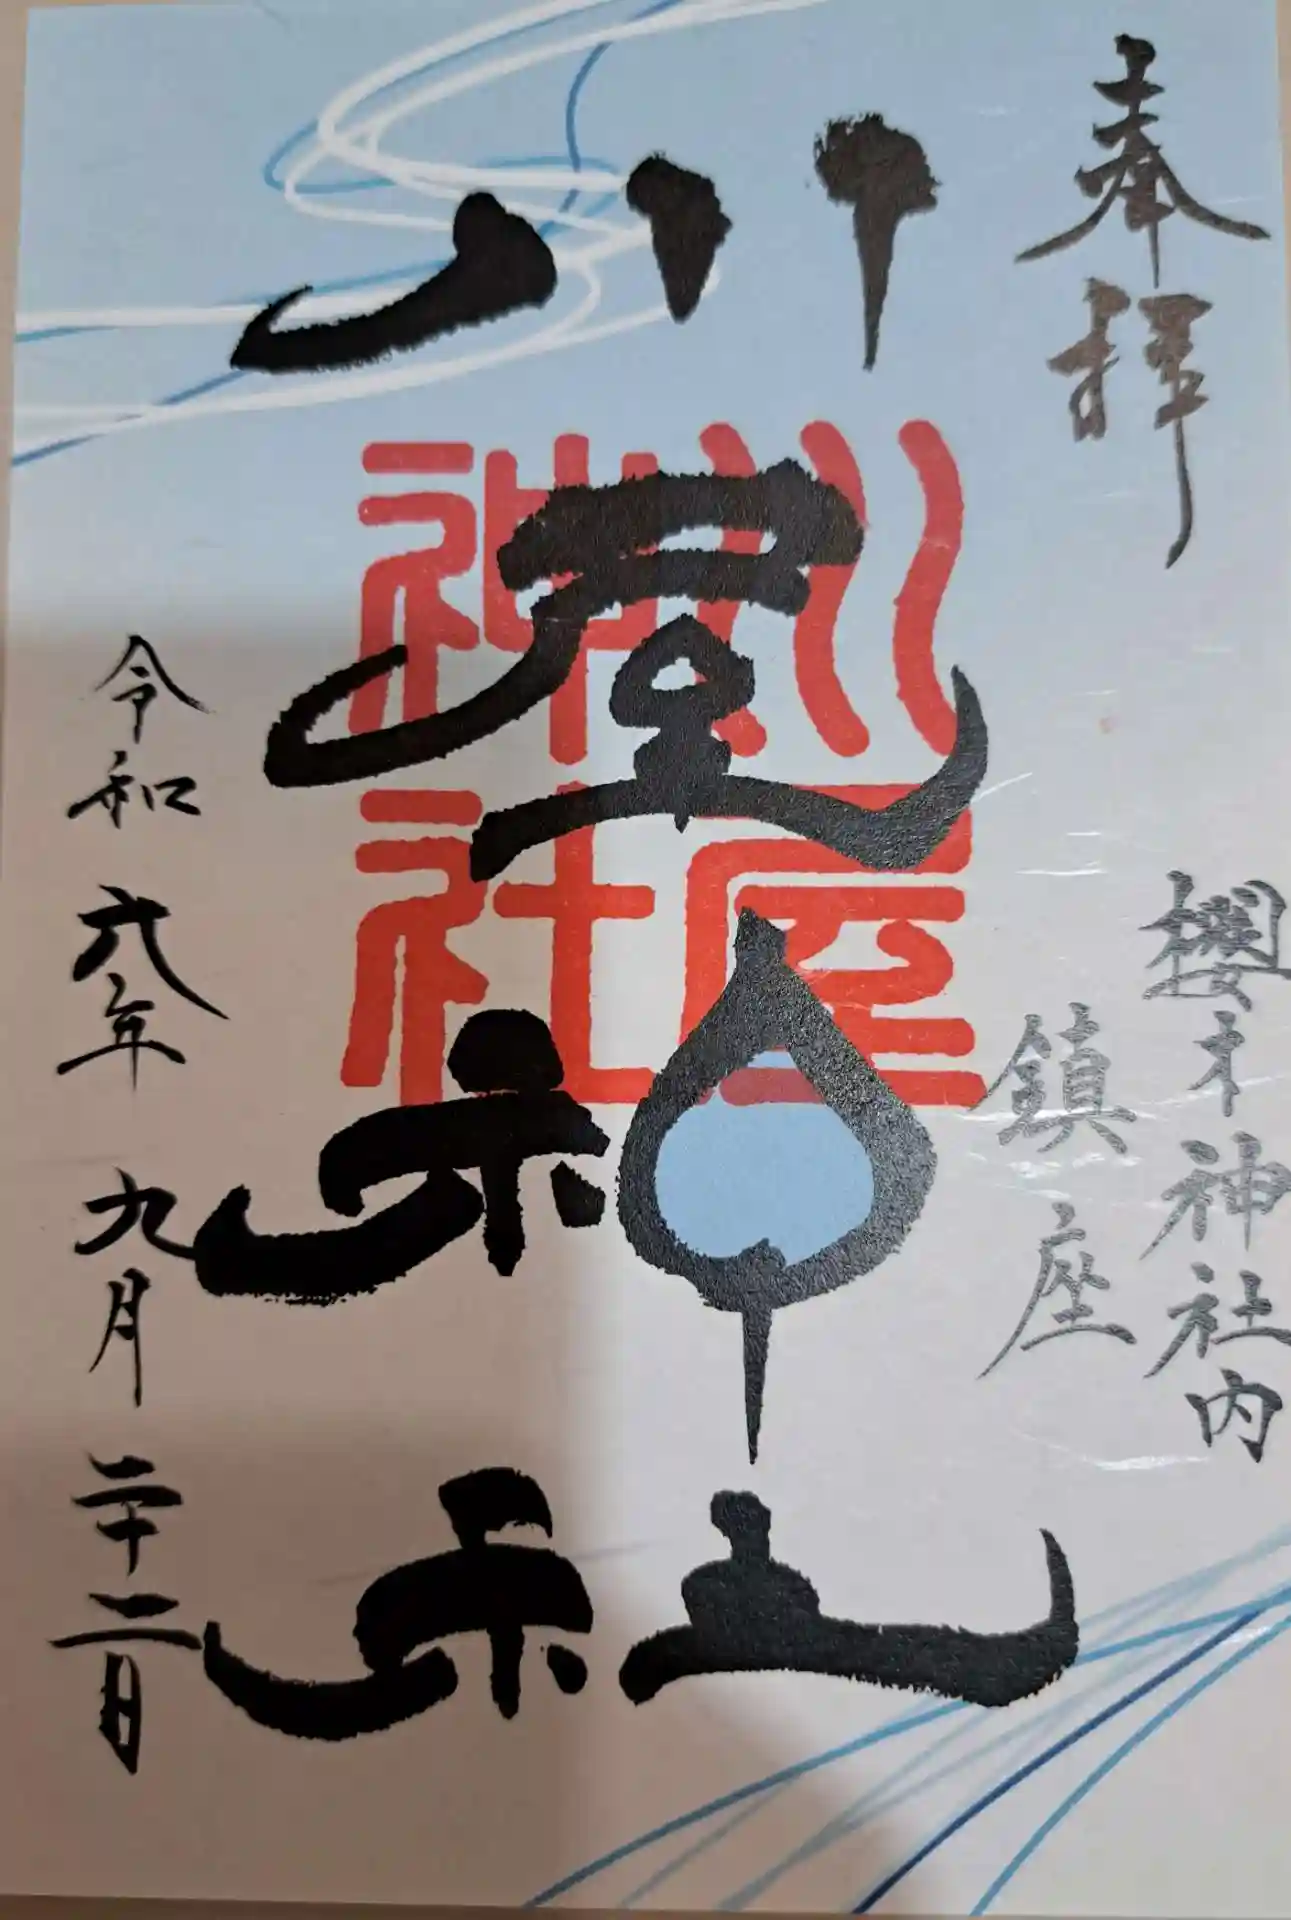 奉拝
櫻木神社内
鎮座
川屋神社
川屋神社
令和六年九月二十二日